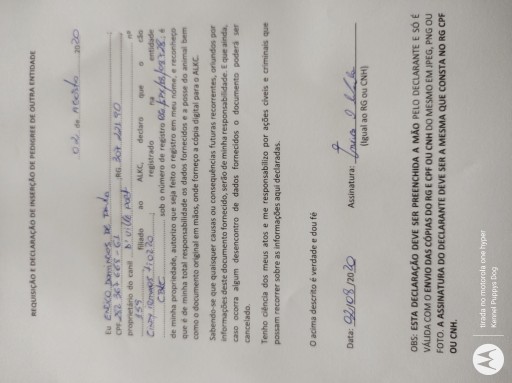 REQUISIÇÃO E DECLARAÇÃO DE INSERÇÃO DE PEDIGREE DE OUTRA ENTIDADE
02 de Agosto 2020
Eu Enrico Domingos de
CPF RG
proprietário do canil nº
159 filiado ao ALKC, declaro que o cão
registrado na entidade
CBKC sob o número de registro é
de minha propriedade, autorizo que seja feito o registro em meu nome, e reconheço
que é de minha total responsabilidade os dados fornecidos e a posse do animal bem
como o documento original em mãos, onde forneço a cópia digital para o ALKC.
Sabendo-se que quaisquer causas ou consequências futuras recorrentes, oriundos por
informações deste documento fornecido, serão de minha responsabilidade. E que ainda,
caso ocorra algum desencontro de dados fornecidos o documento poderá ser
cancelado.
Tenho ciência dos meus atos e me responsabilizo por ações cíveis e criminais que
possam recorrer sobre as informações aqui declaradas.
O acima descrito é verdade e dou fé
Data: 02/08/2020 Assinatura:
(Igual ao RG ou CNH)
OBS: ESTA DECLARAÇÃO DEVE SER PREENCHIDA A MÃO PELO DECLARANTE E SÓ É
VÁLIDA COM O ENVIO DAS CÓPIAS DO RG E CPF OU CNH DO MESMO EM JPEG, PNG OU
FOTO. A ASSINATURA DO DECLARANTE DEVE SER A MESMA QUE CONSTA NO RG CPF
OU CNH.
tirada no motorola one hyper
Kennel Puppys Dog